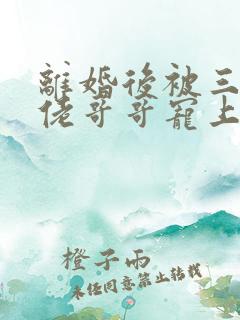 離婚後被三
佬哥哥寵上
橙子雨
未任同意禁止转载